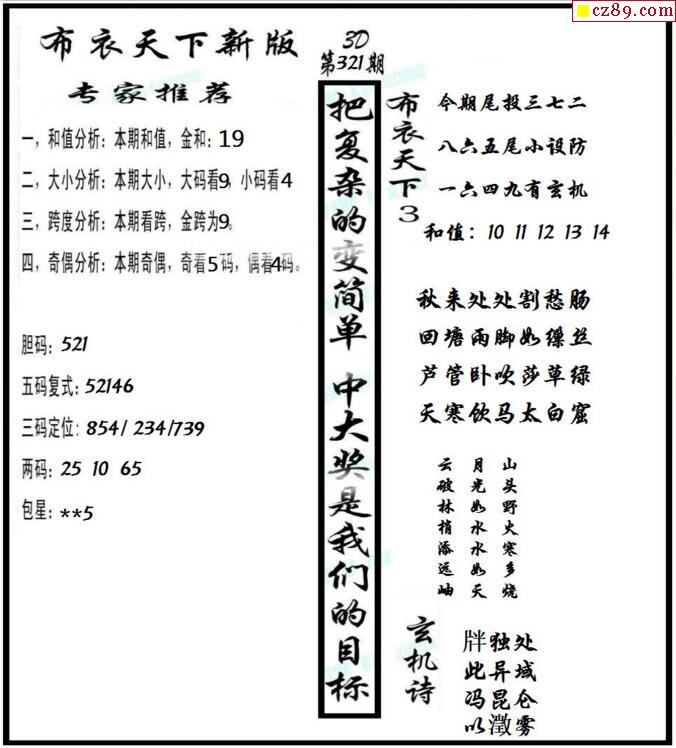 cz89.com
布衣天下新版
专家推荐
一，和值分析：本期和值，金和：19
二，大小分析：本期大小，大码看9，小码看4
三，跨度分析：本期看跨，金跨为9。
四，奇偶分析：本期奇偶，奇看5码，偶看4码。
胆码：521
五码复式：52146
三码定位：854/ 234/739
两码：25 10 65
包星：**5
3D
第321期
把复杂的变简单 中大奖是我们的目标
布衣天下3
今期尾投三七二
八六五尾小设防
一六四九有玄机
和值：10 11 12 13 14
秋来处处割愁肠
回塘雨脚如缲丝
芦管卧吹莎草绿
天寒饮马太白窟
云 月 山
破 光 头
林 如 野
梢 水 火
添 水 寒
远 如 多
岫 天 烧
玄机诗
牉独处
此异域
冯昆仑
以瀓雾